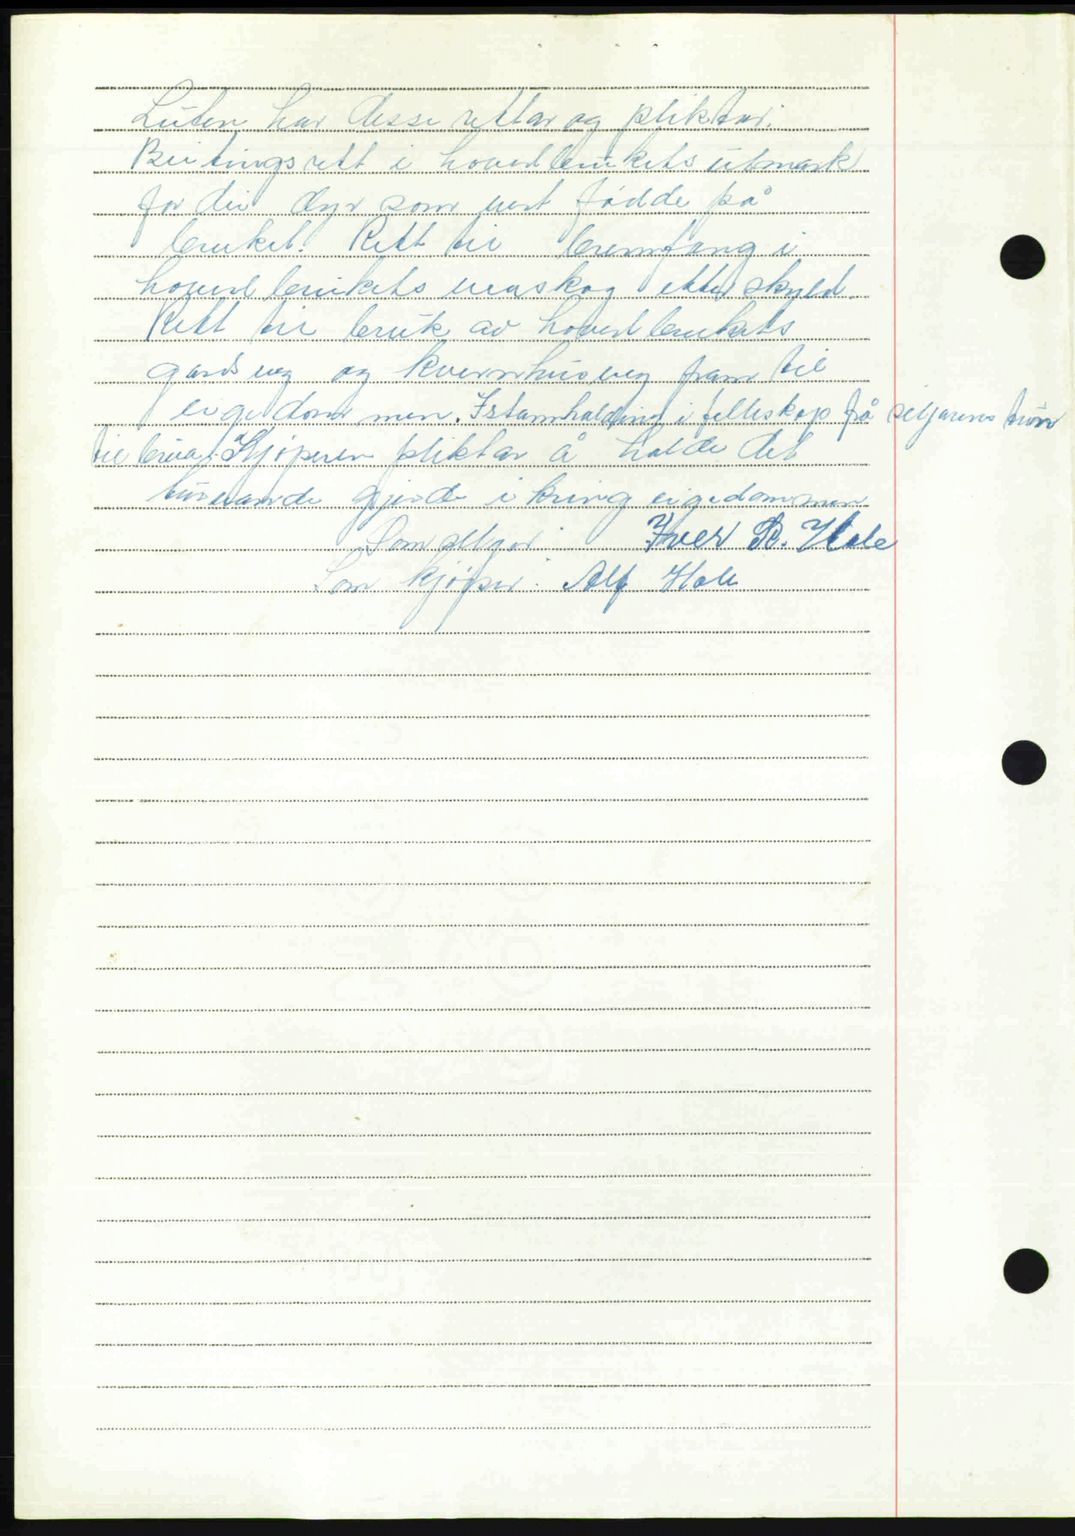 Luten har desse rettar og pliktar:
Beitingsrett i hovedbrukets utmark
for dei dyr som vert fødde på
bruket. Rett til brennfang i
hovedbrukets uraskog etter skyld.
Rett til bruk av hovedbrukets
gardsveg og kvernhusveg fram til
eigedommen. Istandhalding i felleskap frå seljarens
til Kjøperen pliktar å halde det
gjerde i kring eigedommen
Som seljar: Iver R. Hole
Som kjøper: Alf Hole